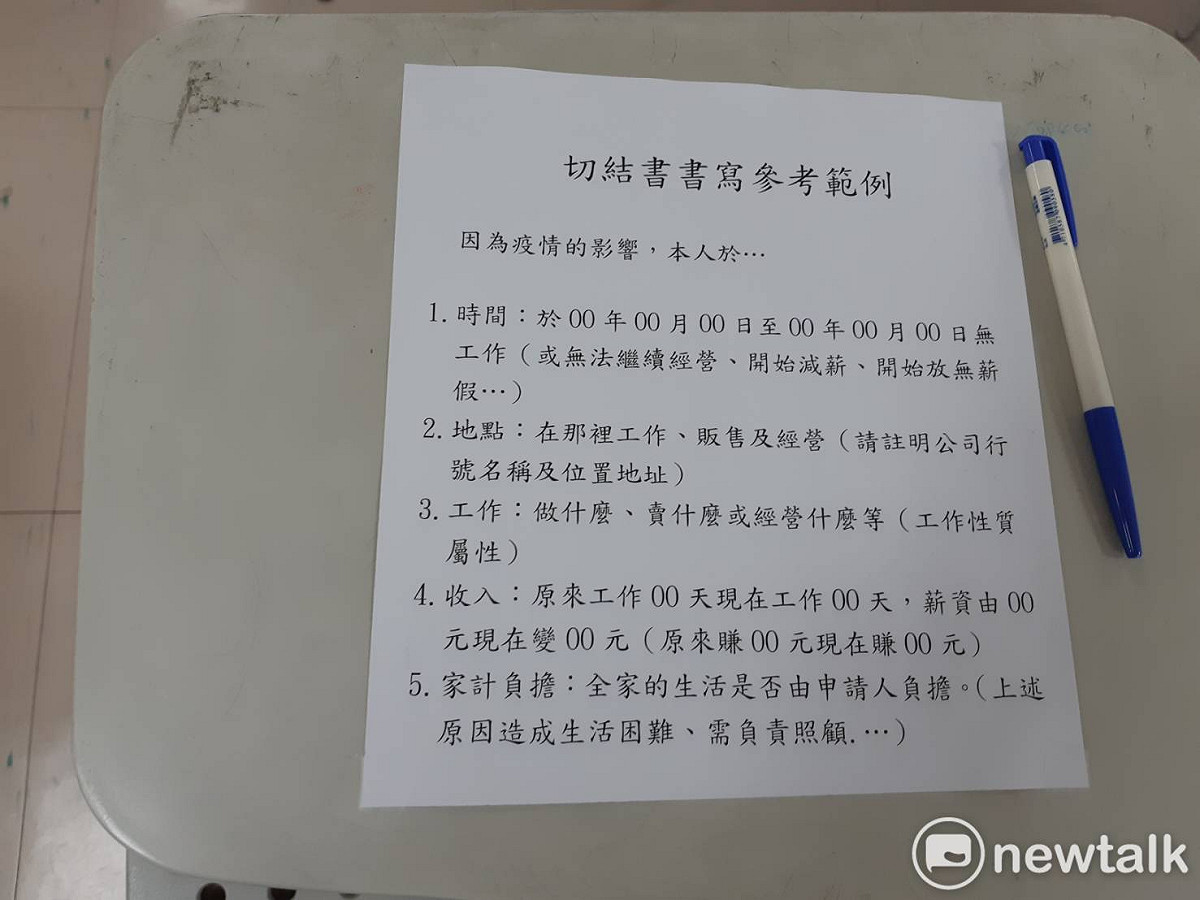 切結書書寫參考範例
因為疫情的影響，本人於…
1. 時間：於 00 年 00 月 00 日至 00 年 00 月 00 日無
工作（或無法繼續經營、開始減薪、開始放無薪
假…）
2. 地點：在那裡工作、販售及經營（請註明公司行
號名稱及位置地址）
3. 工作：做什麼、賣什麼或經營什麼等（工作性質
屬性）
4. 收入：原來工作 00 天現在工作 00 天，薪資由 00
元現在變 00 元（原來賺 00 元現在賺 00 元）
5. 家計負擔：全家的生活是否由申請人負擔。（上述
原因造成生活困難、需負責照顧.…）
newtalk